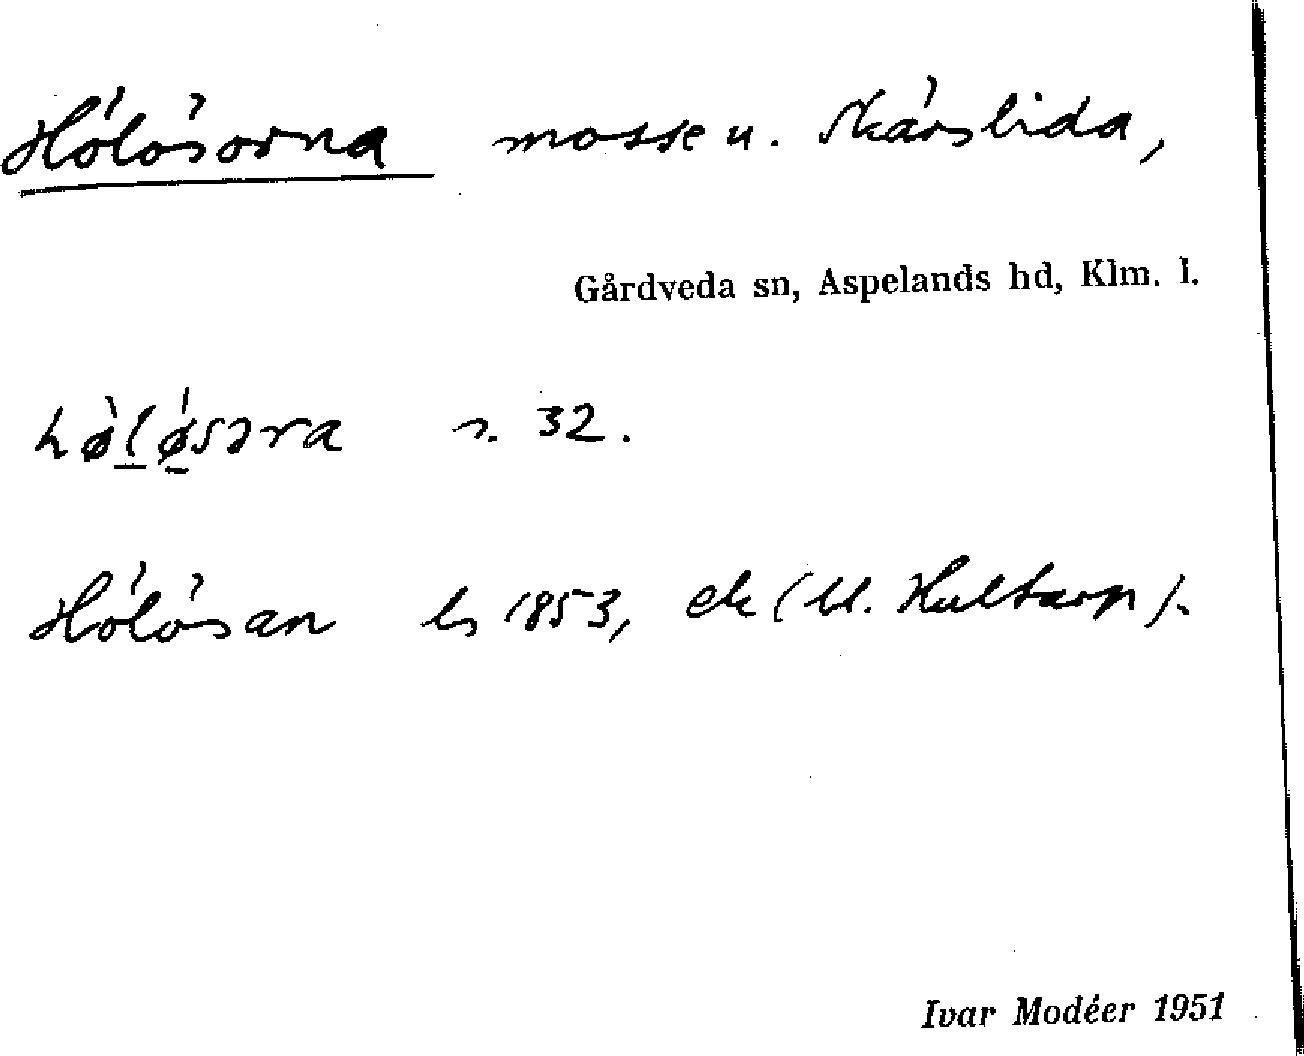 Hölösorna mosse u. Skärslida,
Gårdveda sn, Aspelands hd, Klm. l.
hø̀lǿsəra s. 32.
Hölösan ls 1853, ek (bl. Hultarp).
Ivar Modéer 1951